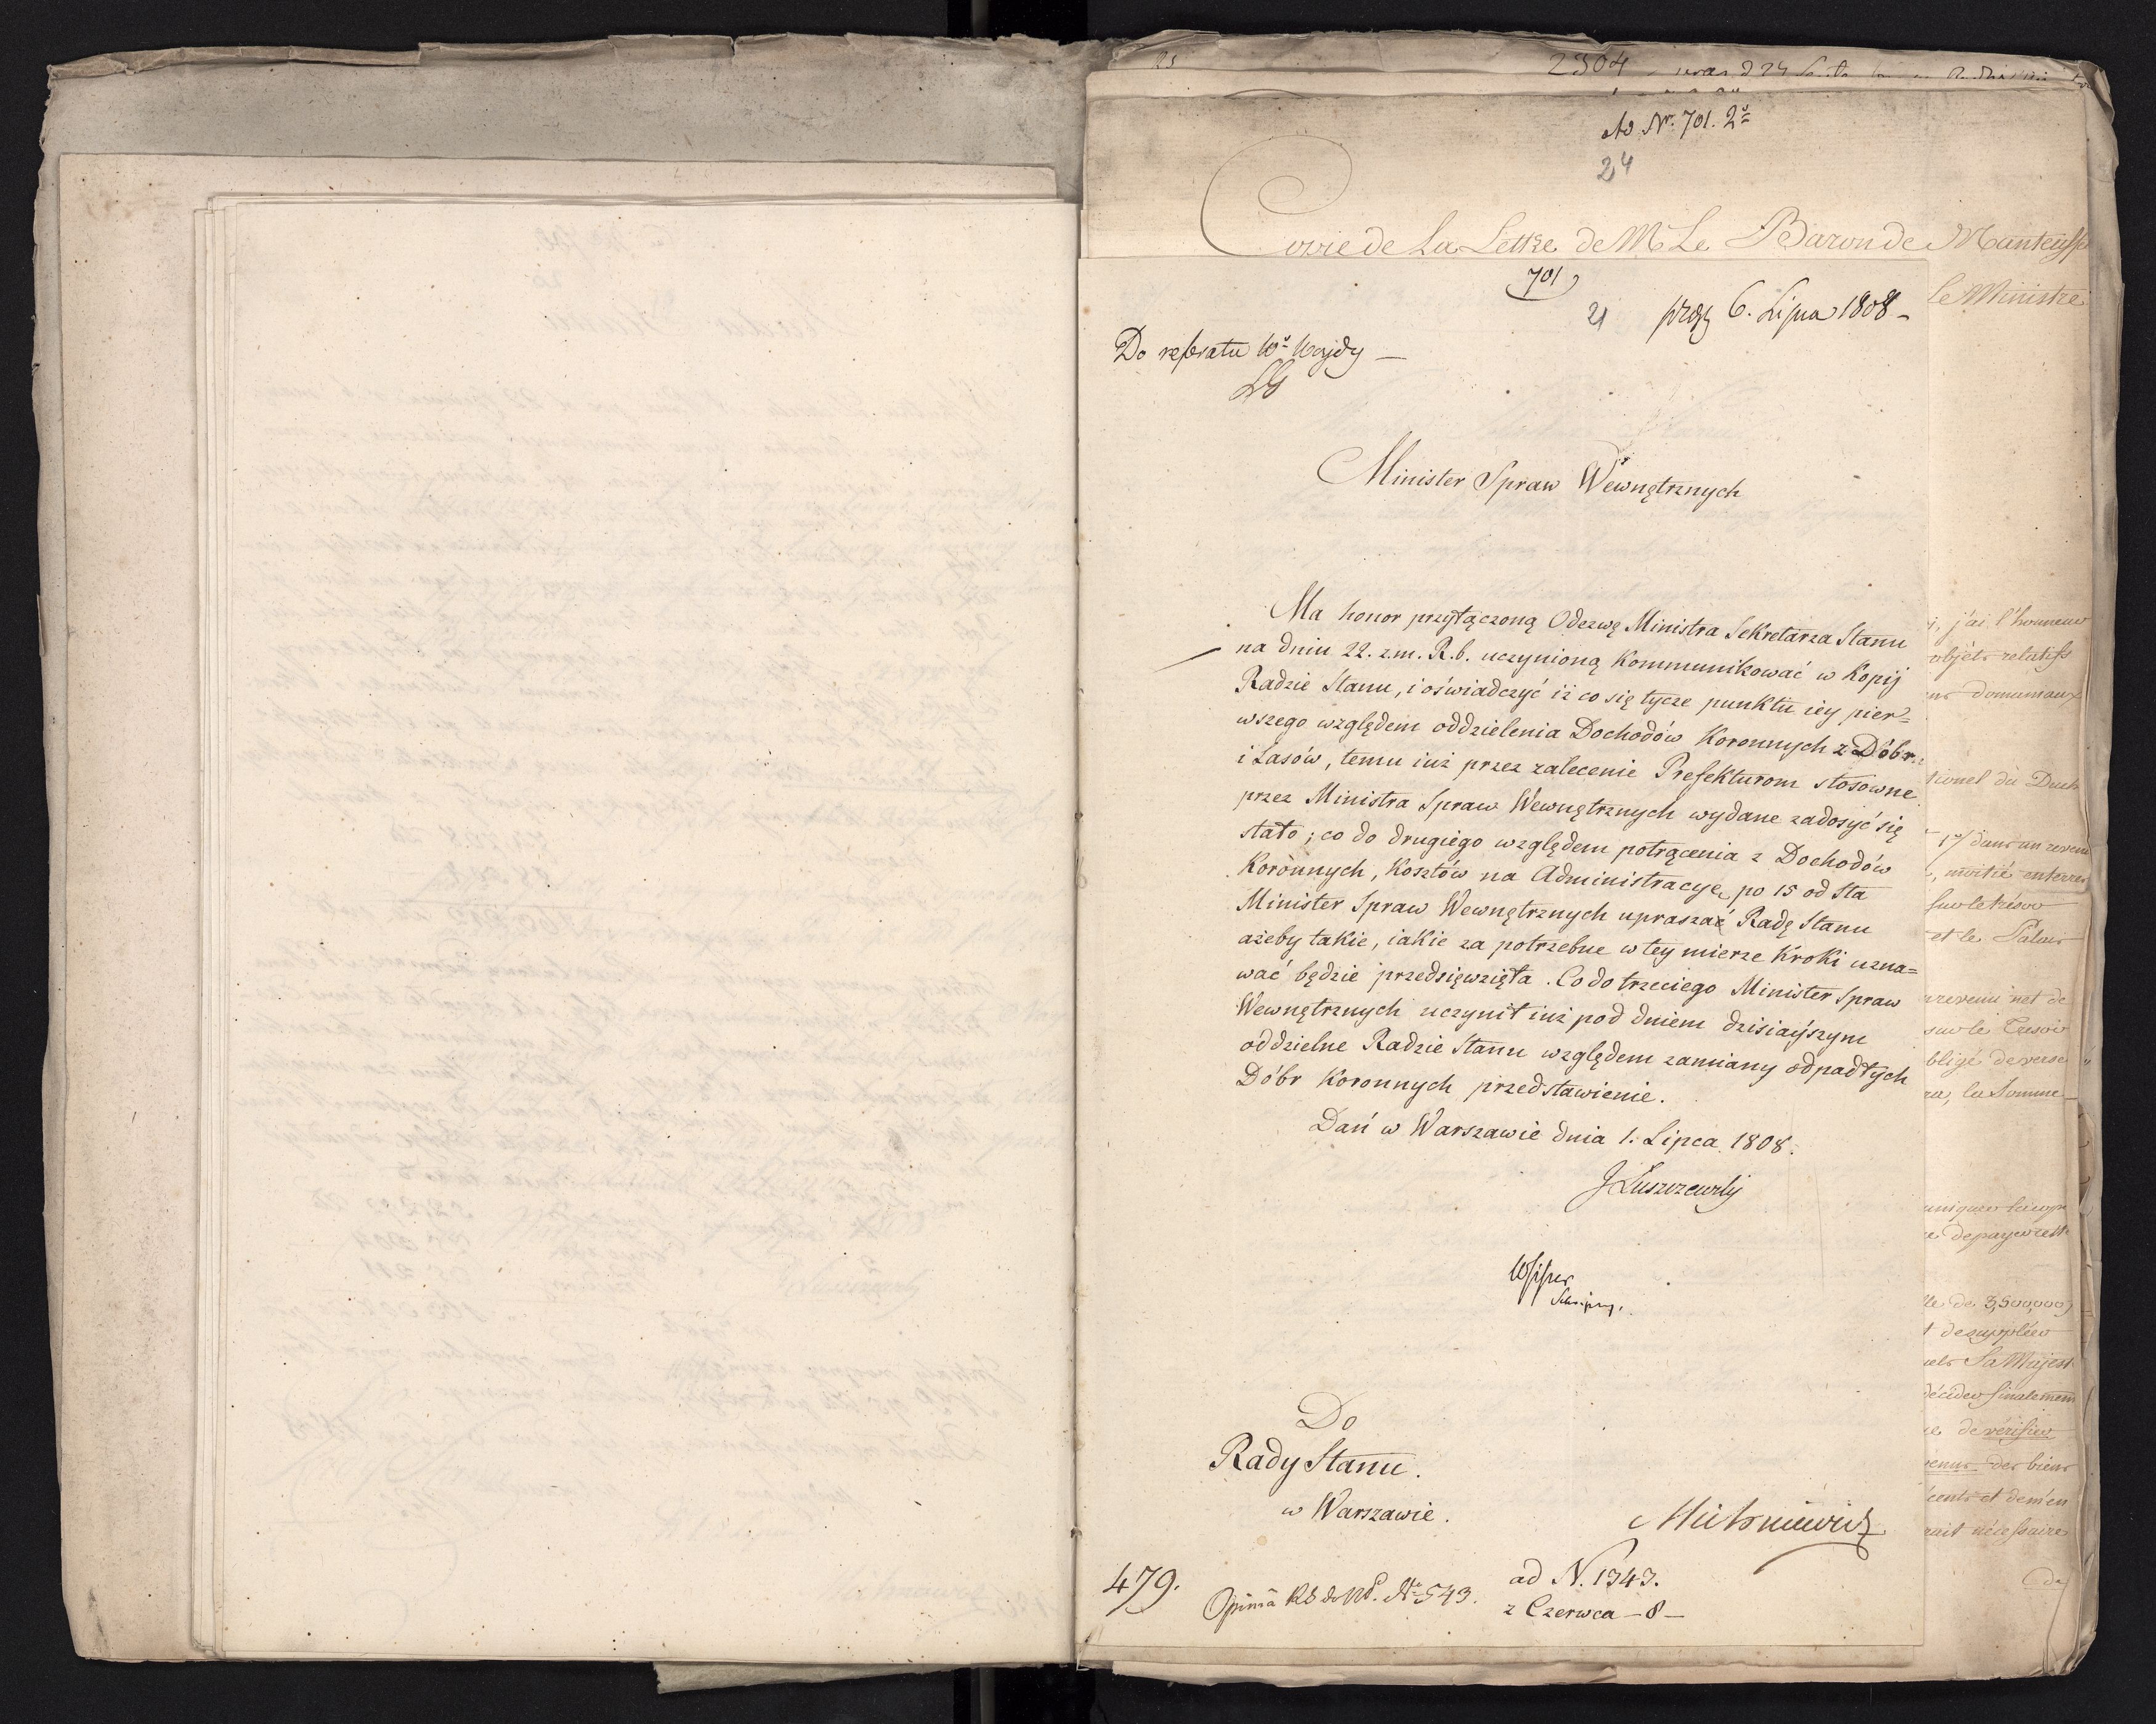 2304
ad Nr. 701. 2
24
Copie de La Lettre de M Le Baron de Manteuff
le Ministre
701
21 prez 6. Lipca 1808 -
Do referatu Wo Wojdy —
LG
Minister Spraw Wewnętrznych
Ma honor przyłączoną Odezwę Ministra Sekretarza Stanu
na dniu 22. z.m. R.b. uczynioną Kommunikować w Kopij
Radzie Stanu, i oświadczyć iż co się tycze punktu iey pier=
wszego względem oddzielenia Dochodów Koronnych z Dóbr
i Lasów, temu iuż przez zalecenie Prefekturom stosowne
przez Ministra Spraw Wewnętrznych wydane zadosyć się
stało; co do drugiego względem potrącenia z Dochodów
Koronnych, Kosztów na Administracyę po 15 od Sta
Minister Spraw Wewnętrznych uprasza Radę Stanu
ażeby takie, iakie za potrzebne w tey mierze Kroki uzna=
wać będzie przedsięwzięła. Co do trzeciego Minister Spraw
Wewnętrznych uczynił iuż pod dniem dzisiayszym
oddzielne Radzie Stanu względem zamiany odpadłych
Dóbr Koronnych przedstawienie.
Dań w Warszawie dnia 1. Lipca 1808.
J Łuszczewski
Do
Rady Stanu.
w Warszawie.
479.
ad N. 1343.
z Czerwca - 8 -
j'ai l'honneur
objets relatifs
domaniaux
du Duch
dans un revenu
moitié en terres
sur le trésor
et le Palais
revenu net de
sur le Tresor
bligé de verse
la Somme
de 3,500,000
de suppléer
Sa Majest
décider finalement
de vérifier
venus des biens
cents et demi en
rait nécessaire
de